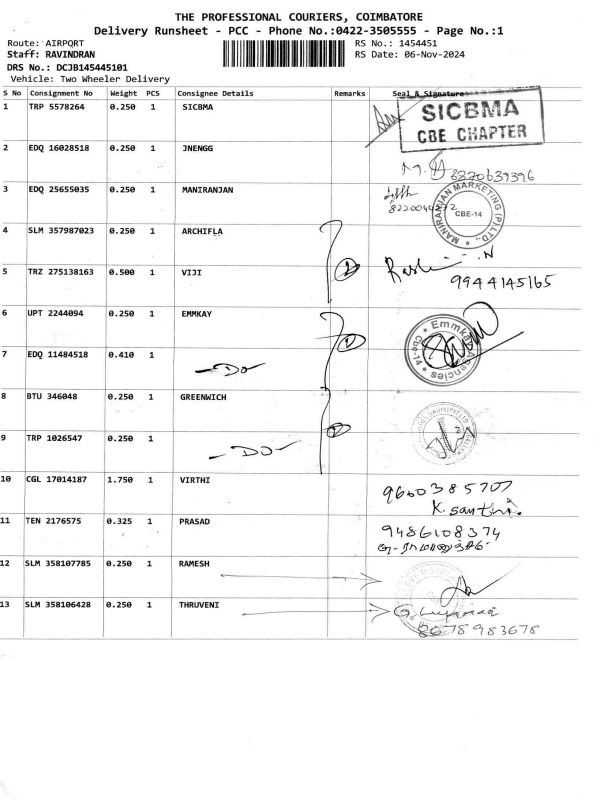 THE PROFESSIONAL COURIERS, COIMBATORE
Delivery Runsheet - PCC - Phone No.:0422-3505555 - Page No.:1
Route: AIRPORT RS No.: 1454451
Staff: RAVINDRAN RS Date: 06-Nov-2024
DRS No.: DCJB145445101
Vehicle: Two Wheeler Delivery
S No Consignment No Weight PCS Consignee Details Remarks Seal & Signature
1 TRP 5578264 0.250 1 SICBMA
SICBMA
CBE CHAPTER
2 EDQ 16028518 0.250 1 JNENGG
3 EDQ 25655035 0.250 1 MANIRANJAN
MANIRANJAN MARKETING (P) LTD.
CBE-14
4 SLM 357987023 0.250 1 ARCHIFLA
5 TRZ 275138163 0.500 1 VIJI 2
9944145165
6 UPT 2244094 0.250 1 EMMKAY 1
Emmkay Agencies
Cbe-14
7 EDQ 11484518 0.410 1
-DO-
8 BTU 346048 0.250 1 GREENWICH
9 TRP 1026547 0.250 1
-DO-
10 CGL 17014187 1.750 1 VIRTHI
9600385707
K. Santhi.
11 TEN 2176575 0.325 1 PRASAD
9486108374
12 SLM 358107785 0.250 1 RAMESH
13 SLM 358106428 0.250 1 THRUVENI
8678983678